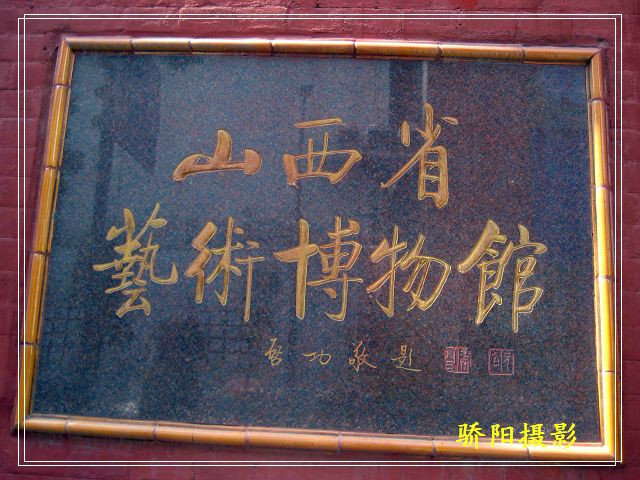 山西省
藝術博物館
啓功敬題
骄阳摄影